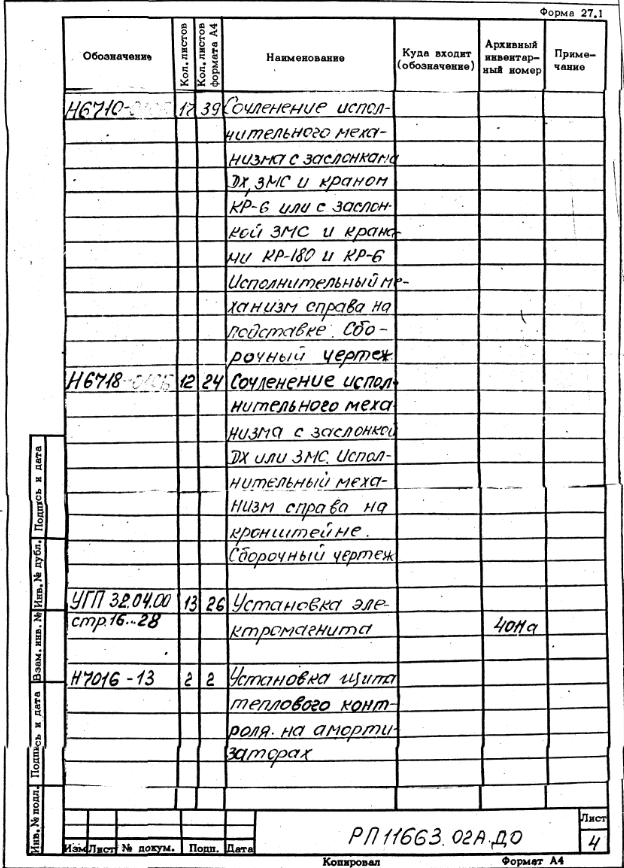 Форма 27.1
Обозначение Кол. листов Кол. листов формата А4 Наименование Куда входит (обозначение) Архивный инвентар- ный номер Приме- чание
Н6710- 17 39 Сочленение испол-
нительного меха-
низма с заслонками
ДХ, ЗМС и краном
КР-6 или с заслон-
кой ЗМС и крана-
ми КР-180 и КР-6
Исполнительный ме-
ханизм справа на
подставке. Сбо-
рочный чертеж
Н6718- 12 24 Сочленение испол-
нительного меха-
низма с заслонкой
ДХ или ЗМС. Испол-
нительный меха-
низм справа на
кронштейне.
Сборочный чертеж
УГП 32.04.00 13 26 Установка эле-
стр.16...28 ктромагнита 40На
Н7016-13 2 2 Установка щита
теплового конт-
роля на аморти-
заторах
Инв. № подл. Подпись и дата Взам. инв. № Инв. № дубл. Подпись и дата
РП11663.02А.ДО Лист
4
Изм Лист № докум. Подп. Дата
Копировал Формат А4